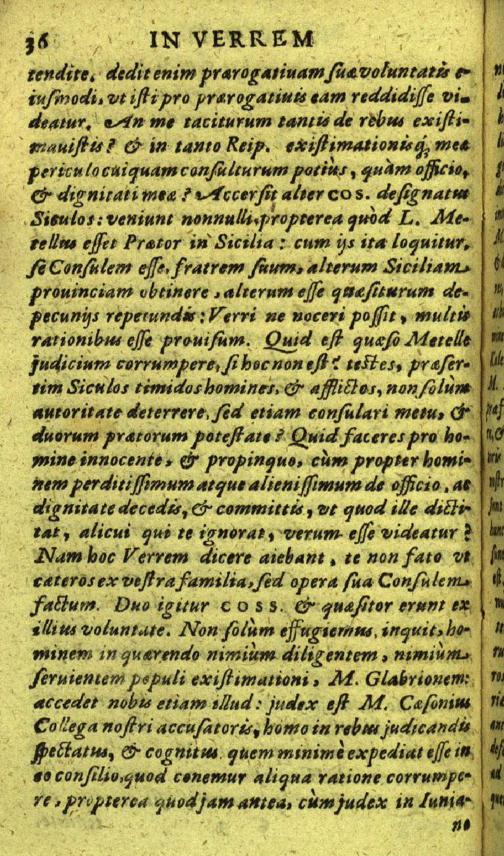 36 IN VERREM
tendite. dedit enim prærogatiuam suæ voluntatis e-
iusmodi, vt isti pro prærogatiuis eam reddidisse vi-
deatur. An me taciturum tantis de rebus existi-
mauistis? & in tanto Reip. existimationisq́; meæ
periculo cuiquam consulturum potiùs, quàm officio,
& dignitati meæ? Accersit alter COS. designatus
Siculos: veniunt nonnulli, propterea quòd L. Me-
tellus esset Prætor in Sicilia: cum ijs ita loquitur,
se Consulem esse, fratrem suum, alterum Siciliam
prouinciam obtinere, alterum esse quæsiturum de
pecunijs repetundis: Verri ne noceri possit, multis
rationibus esse prouisum. Quid est quæso Metelle
judicium corrumpere, si hoc non est? testes, præser-
tim Siculos timidos homines, & afflictos, non solùm
autoritate deterrere, sed etiam consulari metu, &
duorum prætorum potestate? Quid faceres pro ho-
mine innocente, & propinquo, cùm propter homi-
nem perditissimum atque alienissimum de officio, ac
dignitate decedis, & committis, vt quod ille dicti-
tat, alicui qui te ignorat, verum esse videatur?
Nam hoc Verrem dicere aiebant, te non fato vt
cæteros ex vestra familia, sed opera sua Consulem
factum. Duo igitur COSS. & quæsitor erunt ex
illius voluntate. Non solùm effugiemus, inquit, ho-
minem in quærendo nimiùm diligentem, nimiùm
seruientem populi existimationi, M. Glabrionem:
accedet nobis etiam illud: judex est M. Cæsonius
Collega nostri accusatoris, homo in rebus judicandis
spectatus, & cognitus quem minimè expediat esse in
eo consilio, quod conemur aliqua ratione corrumpe-
re, propterea quod jam antea, cùm judex in Iunia-
no